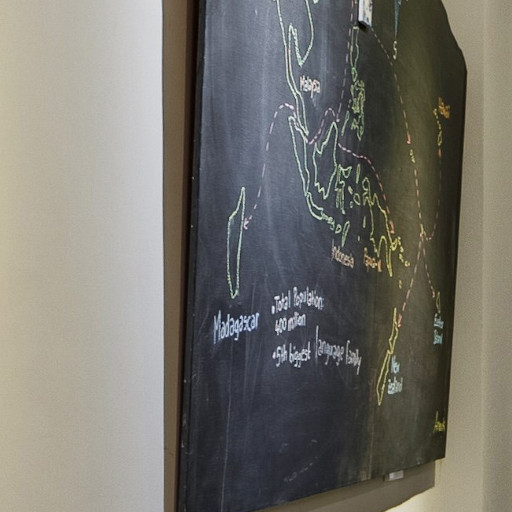 Malaysia
Hawaii
Indonesia
Madagascar
• Total Population:
400 million
• 5th biggest language family
New
Zealand
Easter
Island